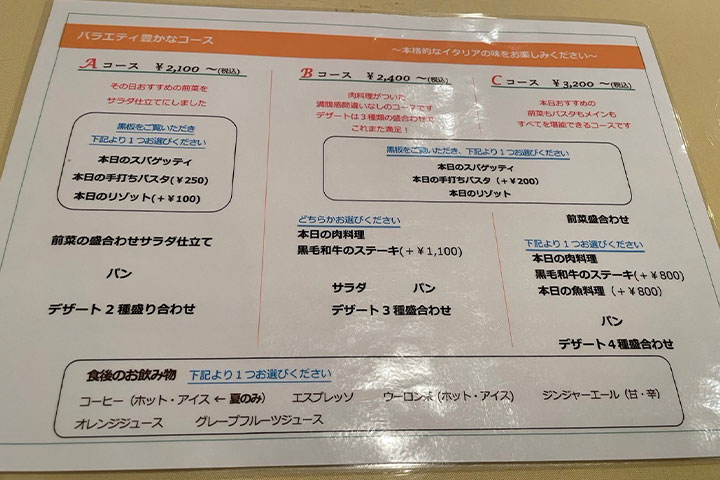 バラエティ豊かなコース
~本格的なイタリアの味をお楽しみください~
A コース ¥2,100 ~(税込)
その日おすすめの前菜を
サラダ仕立てにしました
黒板をご覧いただき
下記より1つお選びください
本日のスパゲッティ
本日の手打ちパスタ(¥250)
本日のリゾット(+¥100)
前菜の盛合わせサラダ仕立て
パン
デザート2種盛り合わせ
B コース ¥2,400 ~(税込)
肉料理がついた
満腹感間違いなしのコースです
デザートは3種類の盛合わせで
これまた満足!
C コース ¥3,200 ~(税込)
本日おすすめの
前菜もパスタもメインも
すべてを堪能できるコースです
黒板をご覧いただき、下記より1つお選びください
本日のスパゲッティ
本日の手打ちパスタ(+¥200)
本日のリゾット
どちらかお選びください
本日の肉料理
黒毛和牛のステーキ(+¥1,100)
サラダ パン
デザート3種盛合わせ
前菜盛合わせ
下記より1つお選びください
本日の肉料理
黒毛和牛のステーキ(+¥800)
本日の魚料理(+¥800)
パン
デザート4種盛合わせ
食後のお飲み物 下記より1つお選びください
コーヒー(ホット・アイス ← 夏のみ) エスプレッソ ウーロン茶(ホット・アイス) ジンジャーエール(甘・辛)
オレンジジュース グレープフルーツジュース